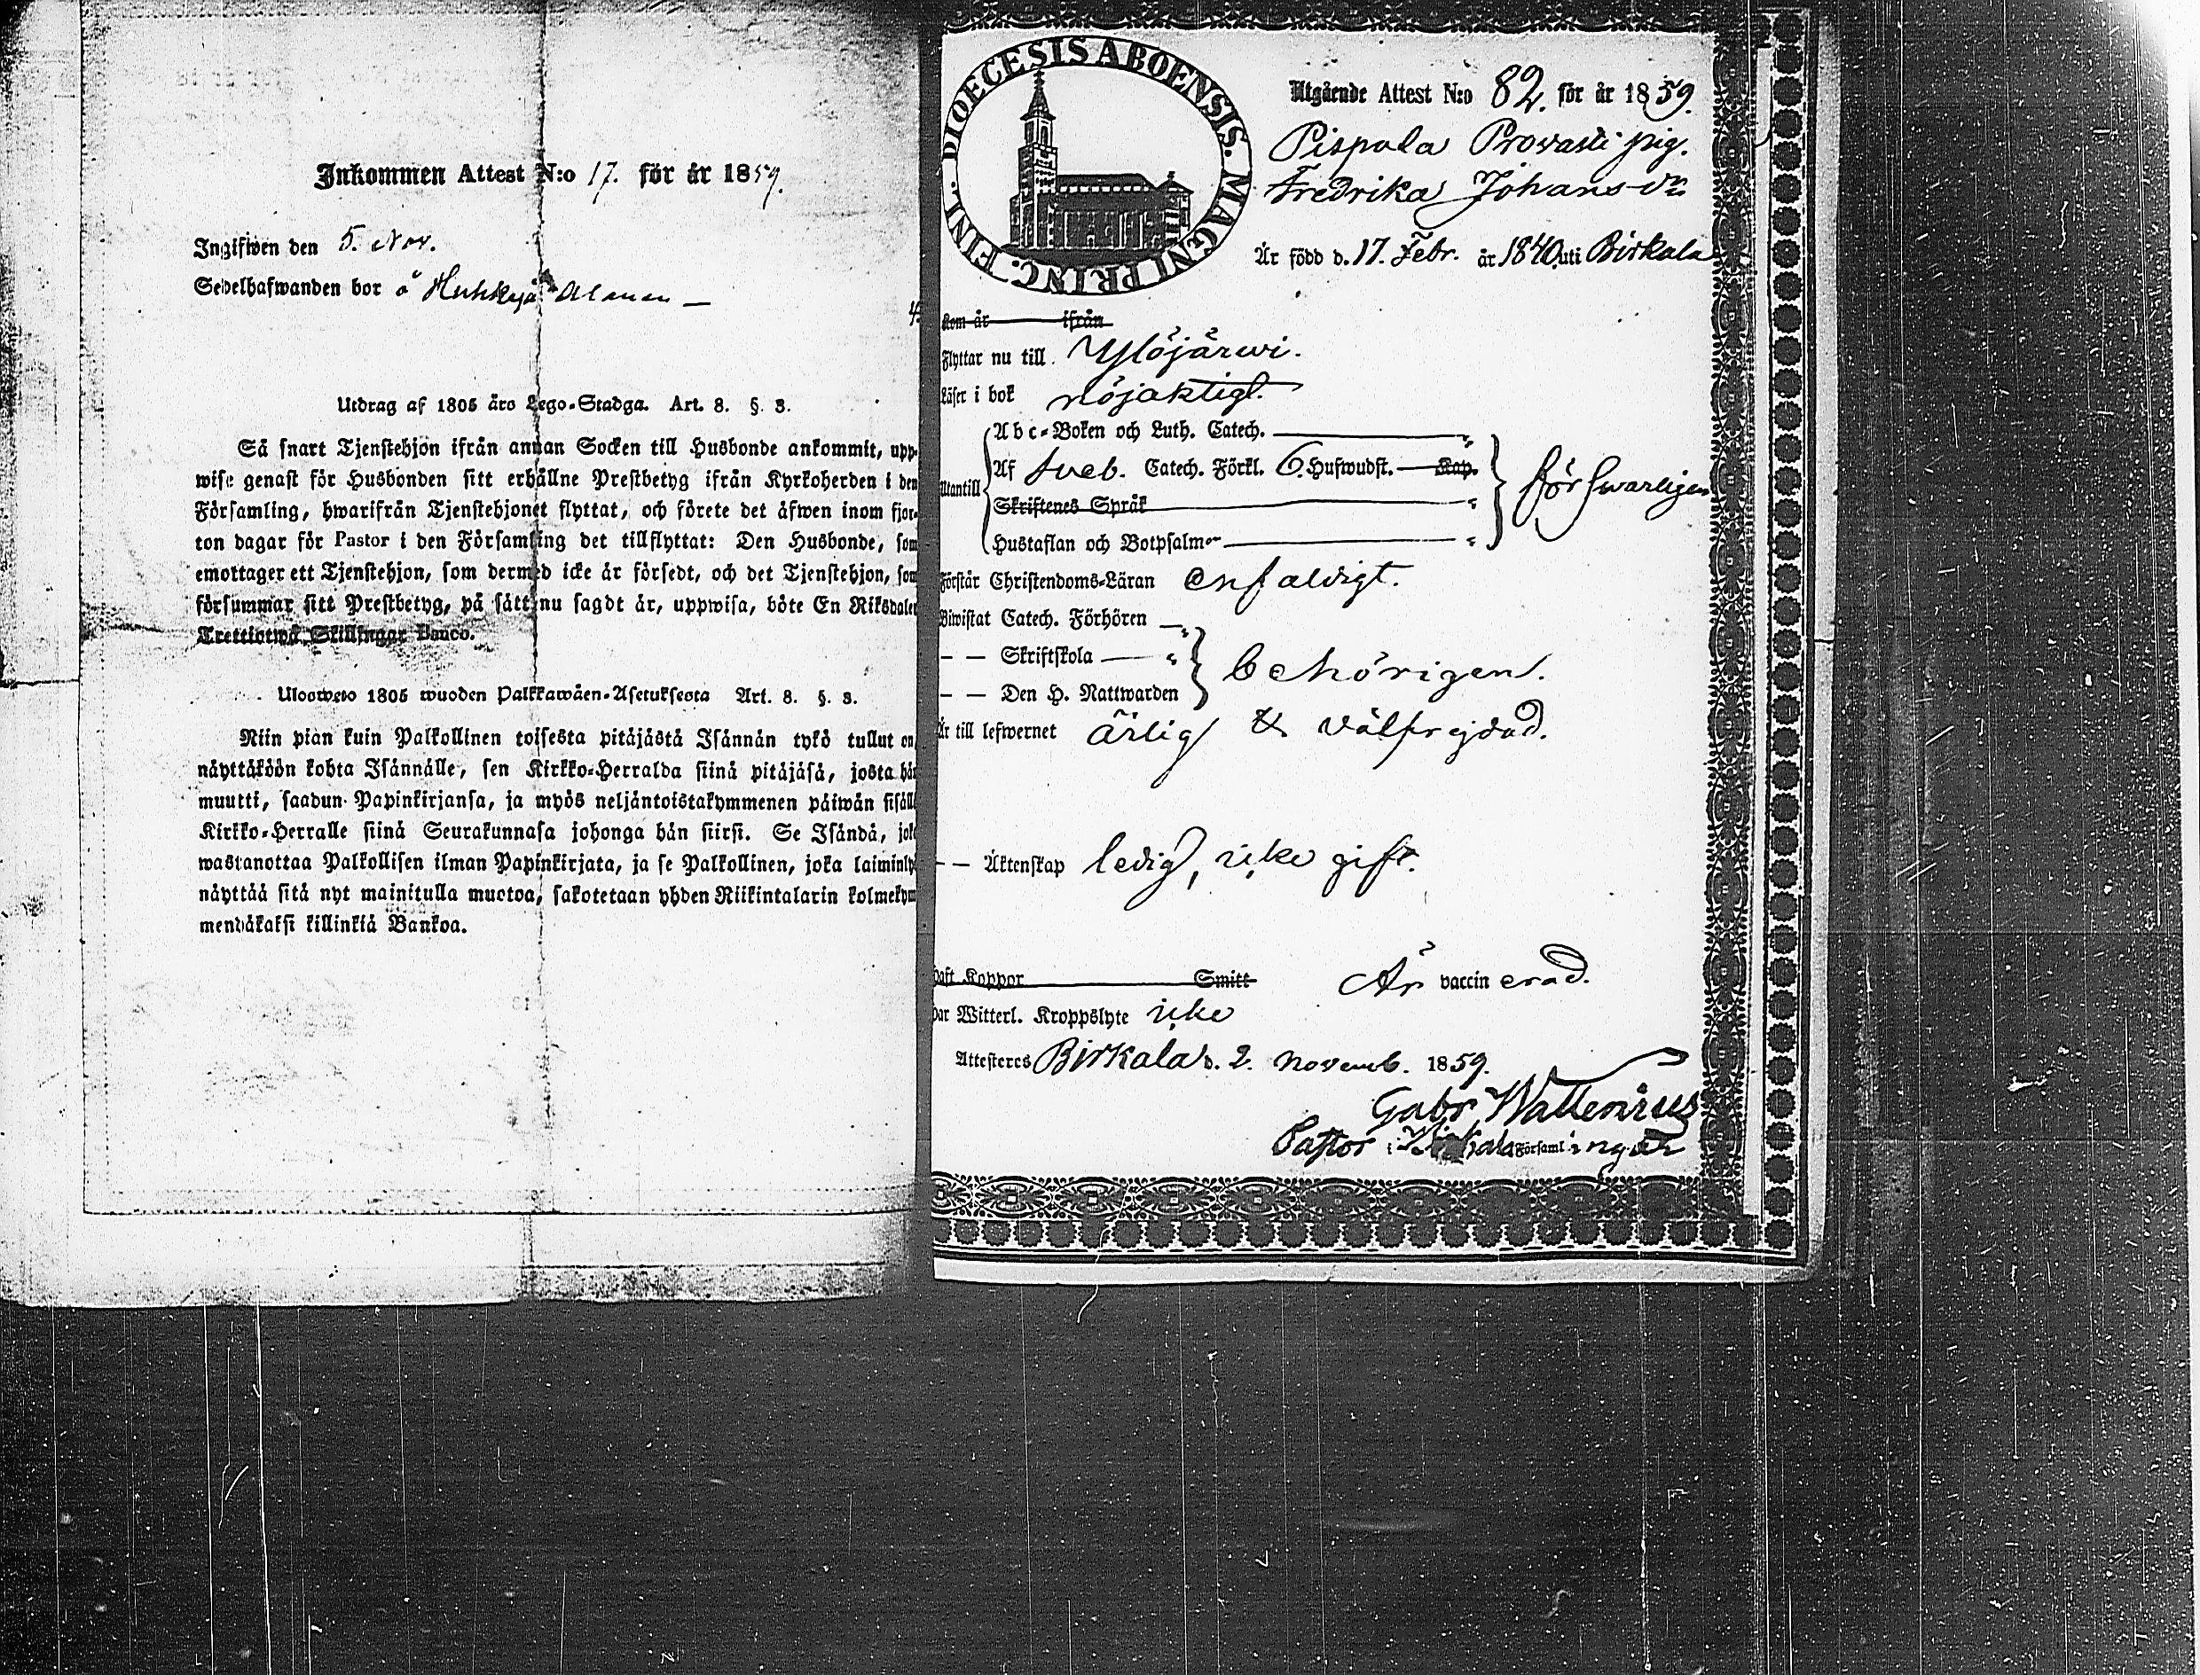 Inkommen Attest N:o 17. för år 1859.
Ingifwen den 5. Nov.
Sedelhafwanden bor å Huhkyå Alanen —
Utdrag af 1805 års Lego-Stadga. Art. 8. §. 3.
Så snart Tjenstehjon ifrån annan Socken till Husbonde ankommit, upp-
wise genast för Husbonden sitt erhållne Prestbetyg ifrån Kyrkoherden i den
Församling, hwarifrån Tjenstehjonet flyttat, och förete det äfwen inom fjor-
ton dagar för Pastor i den Församling det tillflyttat: Den Husbonde, som
emottager ett Tjenstehjon, som dermed icke är försedt, och det Tjenstehjon, som
försummar sitt Prestbetyg, på sätt nu sagdt är, uppwisa, böte En Riksdaler
Trettiotwå Skillingar Banco.
Ulosweto 1805 wuoden Palkkawäen-Asetuksesta Art. 8. §. 3.
Niin pian kuin Palkollinen toisesta pitäjästä Isännän tykö tullut on,
näyttäköön kohta Isännälle, sen Kirkko-Herralda siinä pitäjäsä, josta hän
muutti, saadun Papinkirjansa, ja myös neljäntoistakymmenen päiwän sisällä
Kirkko-Herralle siinä Seurakunnasa johonga hän siirsi. Se Isändä, joka
wastanottaa Palkollisen ilman Papinkirjata, ja se Palkollinen, joka laiminly
näyttää sitä nyt mainitulla muotoa, sakotetaan yhden Riikintalarin kolmekym
mendäkaksi killinkiä Bankoa.
DIOECESIS ABOENSIS. MAGNI PRINC. FINL.
Utgående Attest N:o 82. för år 1859.
Pispala Provasti pig.
Fredrika Johans dr
Är född d. 17. Febr. år 1840 uti Birkala
Kom år ifrån
Flyttar nu till Ylöjärwi.
Läser i bok nöjaktigt.
Utantill
Abc-Boken och Luth. Catech.
Af Sveb. Catech. Förkl. 6. Hufwudst. Kap.
Skriftenes Språk
Hustaflan och Botpsalmer
försvarligen
Förstår Christendoms-Läran enfaldigt.
Biwistat Catech. Förhören
— — Skriftskola
— — Den H. Nattwarden
behörigen.
Är till lefwernet ärlig & välfrejdad.
— — Äktenskap ledig, icke gift.
Haft Koppor Smitt Är vaccinerad.
Har Witterl. Kroppslyte icke
Attesteres Birkala d. 2. Novemb. 1859.
Gabr. Wallenius
Pastor i Birkala Församlingar